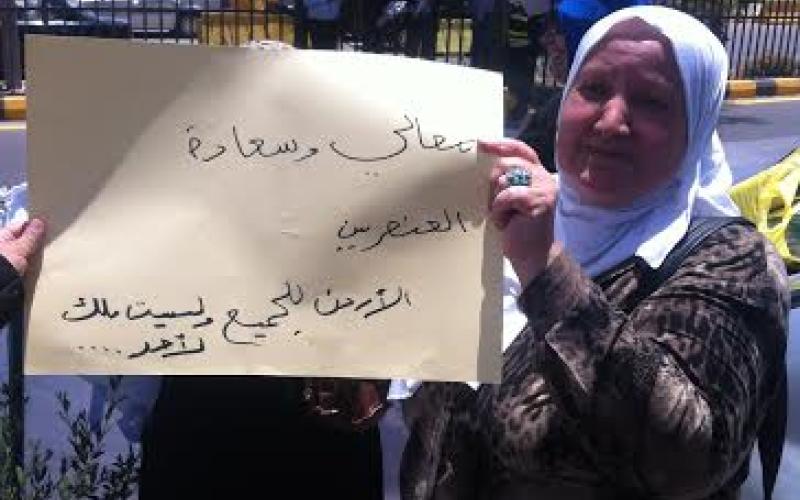 معالي وسعادة
العنصريين
الأردن للجميع وليست ملك
لأحد ....